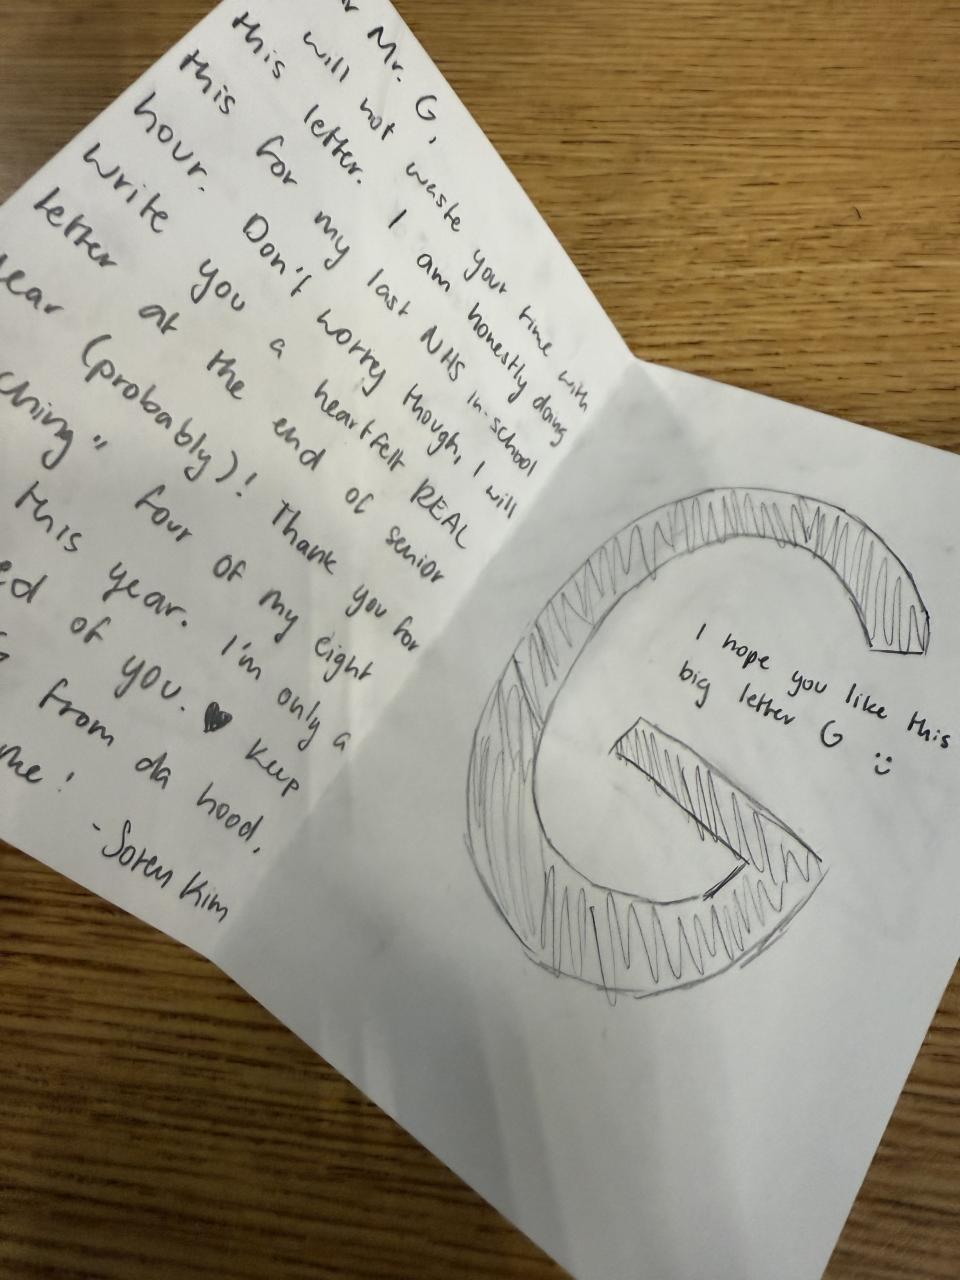 r Mr. G,
will not waste your time with
this letter. I am honestly doing
this for my last NHS in-school
hour. Don't worry though, I will
write you a heartfelt REAL
letter at the end of senior
ear (probably)! Thank you for
ching" four of my eight
this year. I'm only a
ed of you. ♥ Keep
from da hood,
me!
- Soren Kim
I hope you like this
big letter G :)
G